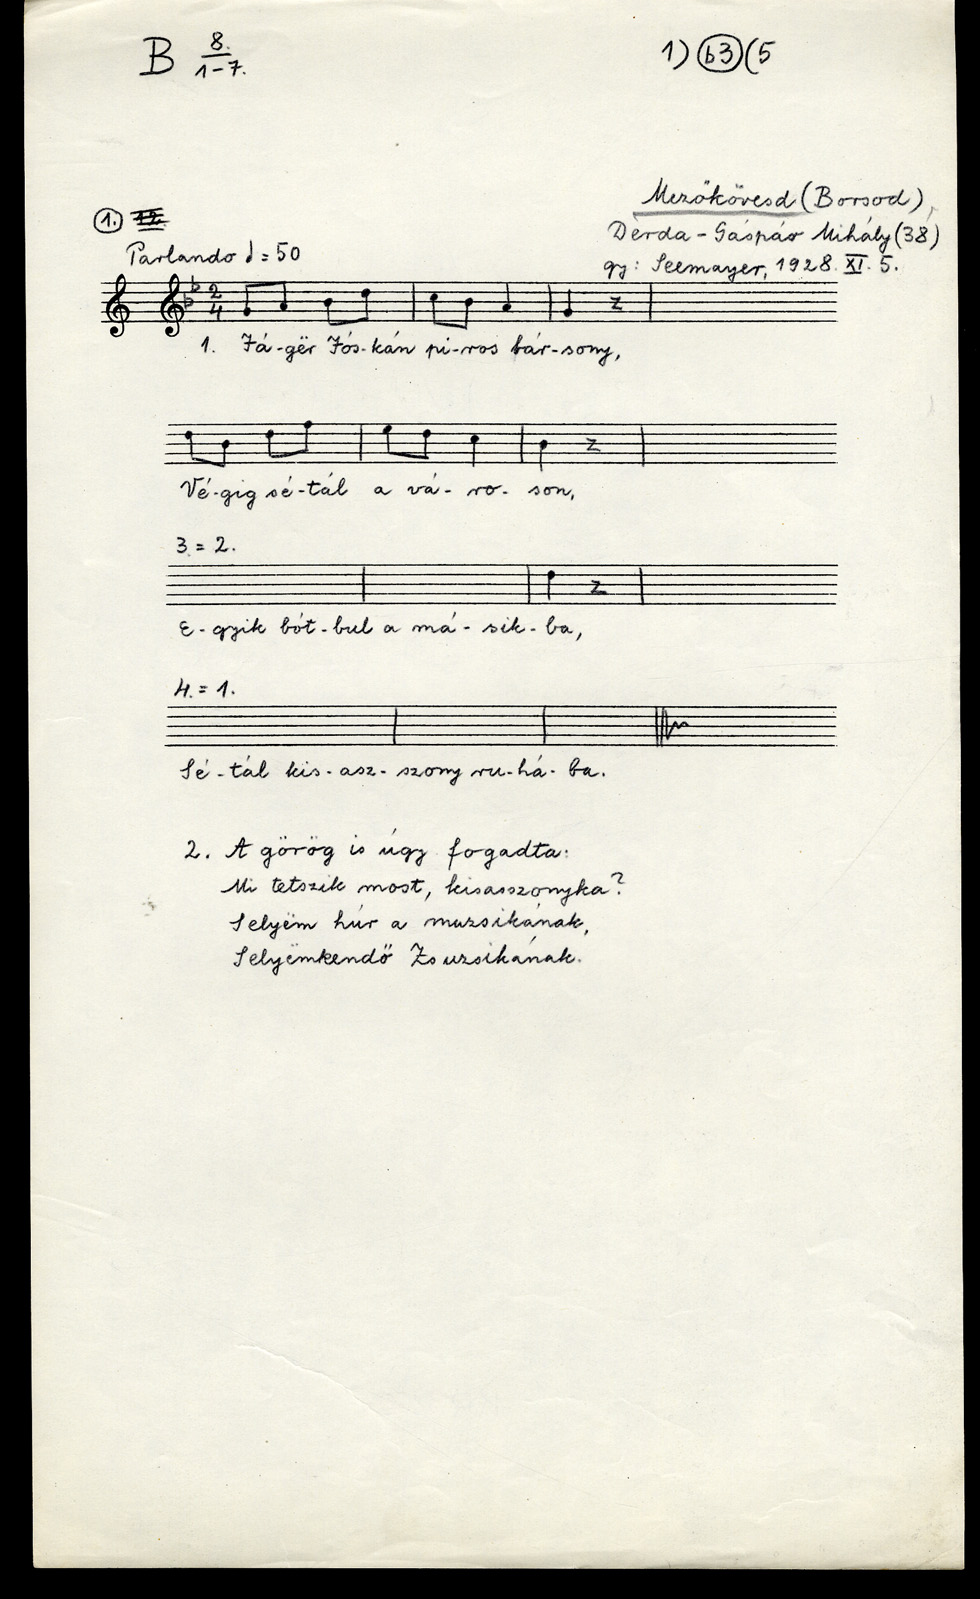 B 8. / 1-7.
1) (b3) (5
Mezőkövesd (Borsod),
1.
Dèrda-Gáspár Mihály (38)
Parlando ♩=50
gy: Seemayer, 1928. XI. 5.
2 4
1. Fá-gër Jós-kán pi-ros bár-sony,
Vé-gig sé-tál a vá-ro-son,
3.=2.
E-gyik bót-bul a má-sik-ba,
4.=1.
Sé-tál kis-asz-szony ru-há-ba.
2. A görög is úgy fogadta:
Mi tetszik most, kisasszonyka?
Selyëm húr a muzsikának,
Selyëmkendő Zsuzsikának.